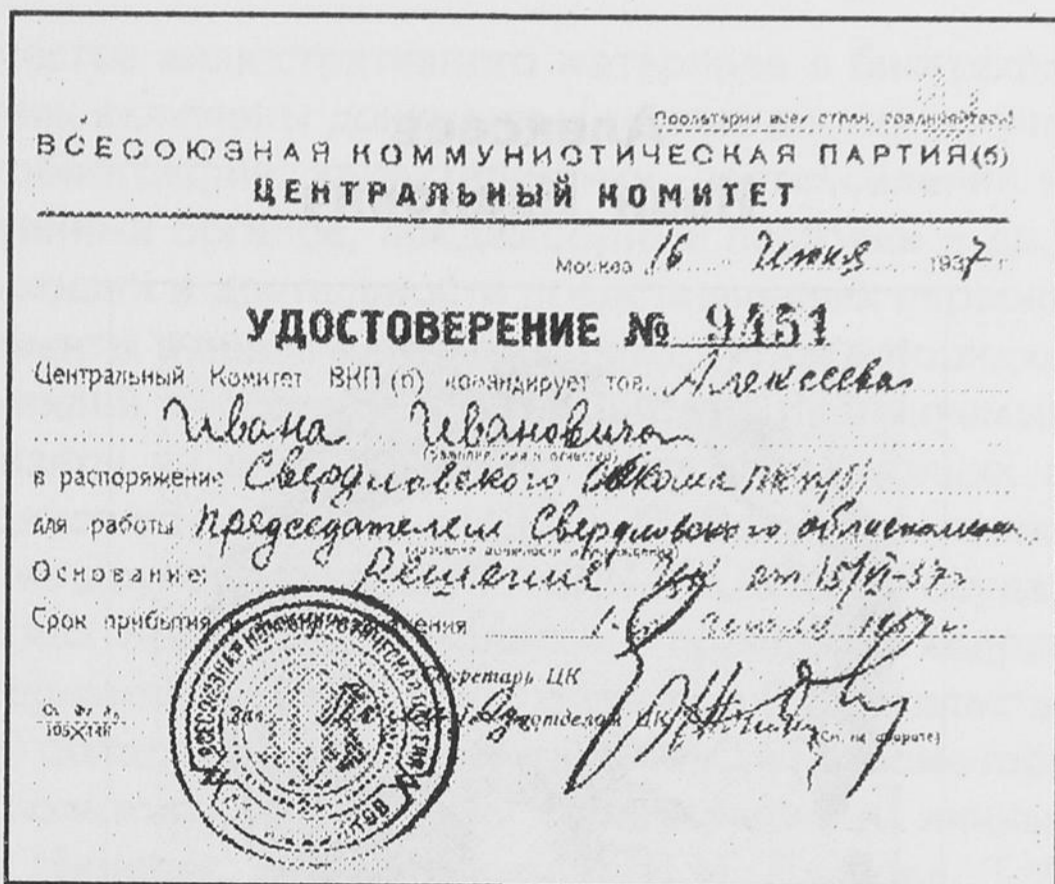 Пролетарии всех стран, соединяйтесь!
ВСЕСОЮЗНАЯ КОММУНИСТИЧЕСКАЯ ПАРТИЯ(б)
ЦЕНТРАЛЬНЫЙ КОМИТЕТ
Москва 16 Июня 1937 г.
УДОСТОВЕРЕНИЕ № 9451
Центральный Комитет ВКП(б) командирует тов. Алексеева
Ивана Ивановича
(фамилия, имя и отчество)
в распоряжение Свердловского Обкома ВКП(б)
для работы председателем Свердловского облисполкома
(название должности и учреждения)
Основание: Решение ЦК от 15/VI-37г
Срок прибытия к месту назначения 1937 г.
Секретарь ЦК
Зав. отделом ЦК
(См. на обороте)
105×148
ВСЕСОЮЗНАЯ КОММУНИСТИЧЕСКАЯ ПАРТИЯ